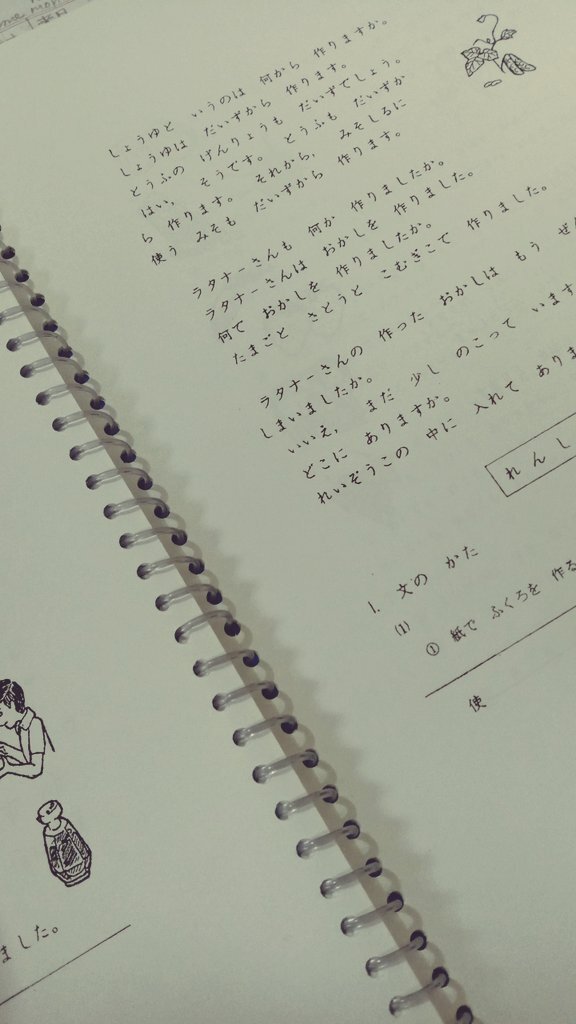 しょうゆと いうのは 何から 作りますか。
しょうゆは だいずから 作ります。
とうふの げんりょうも だいずでしょう。
はい、 そうです。 とうふも だいずか
ら 作ります。 それから、 みそしるに
使う みそも だいずから 作ります。
ラタナーさんも 何か 作りましたか。
ラタナーさんは おかしを 作りました。
何で おかしを 作りましたか。
たまごと さとうと こむぎこで 作りました。
ラタナーさんの 作った おかしは もう
しまいましたか。
いいえ、 まだ 少し のこって います
どこに ありますか。
れいぞうこの 中に 入れて ありま
れんし
1. 文の かた
(1)
① 紙で ふくろを 作る
使
ました。